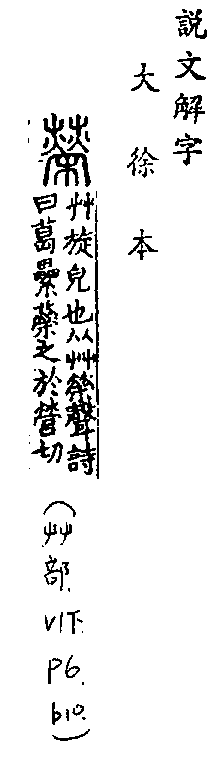 說文解字
大徐本
䕦
艸旋皃也从艸榮聲詩
曰葛纍䕦之於營切
(艸部. V1下. P6. b10.)